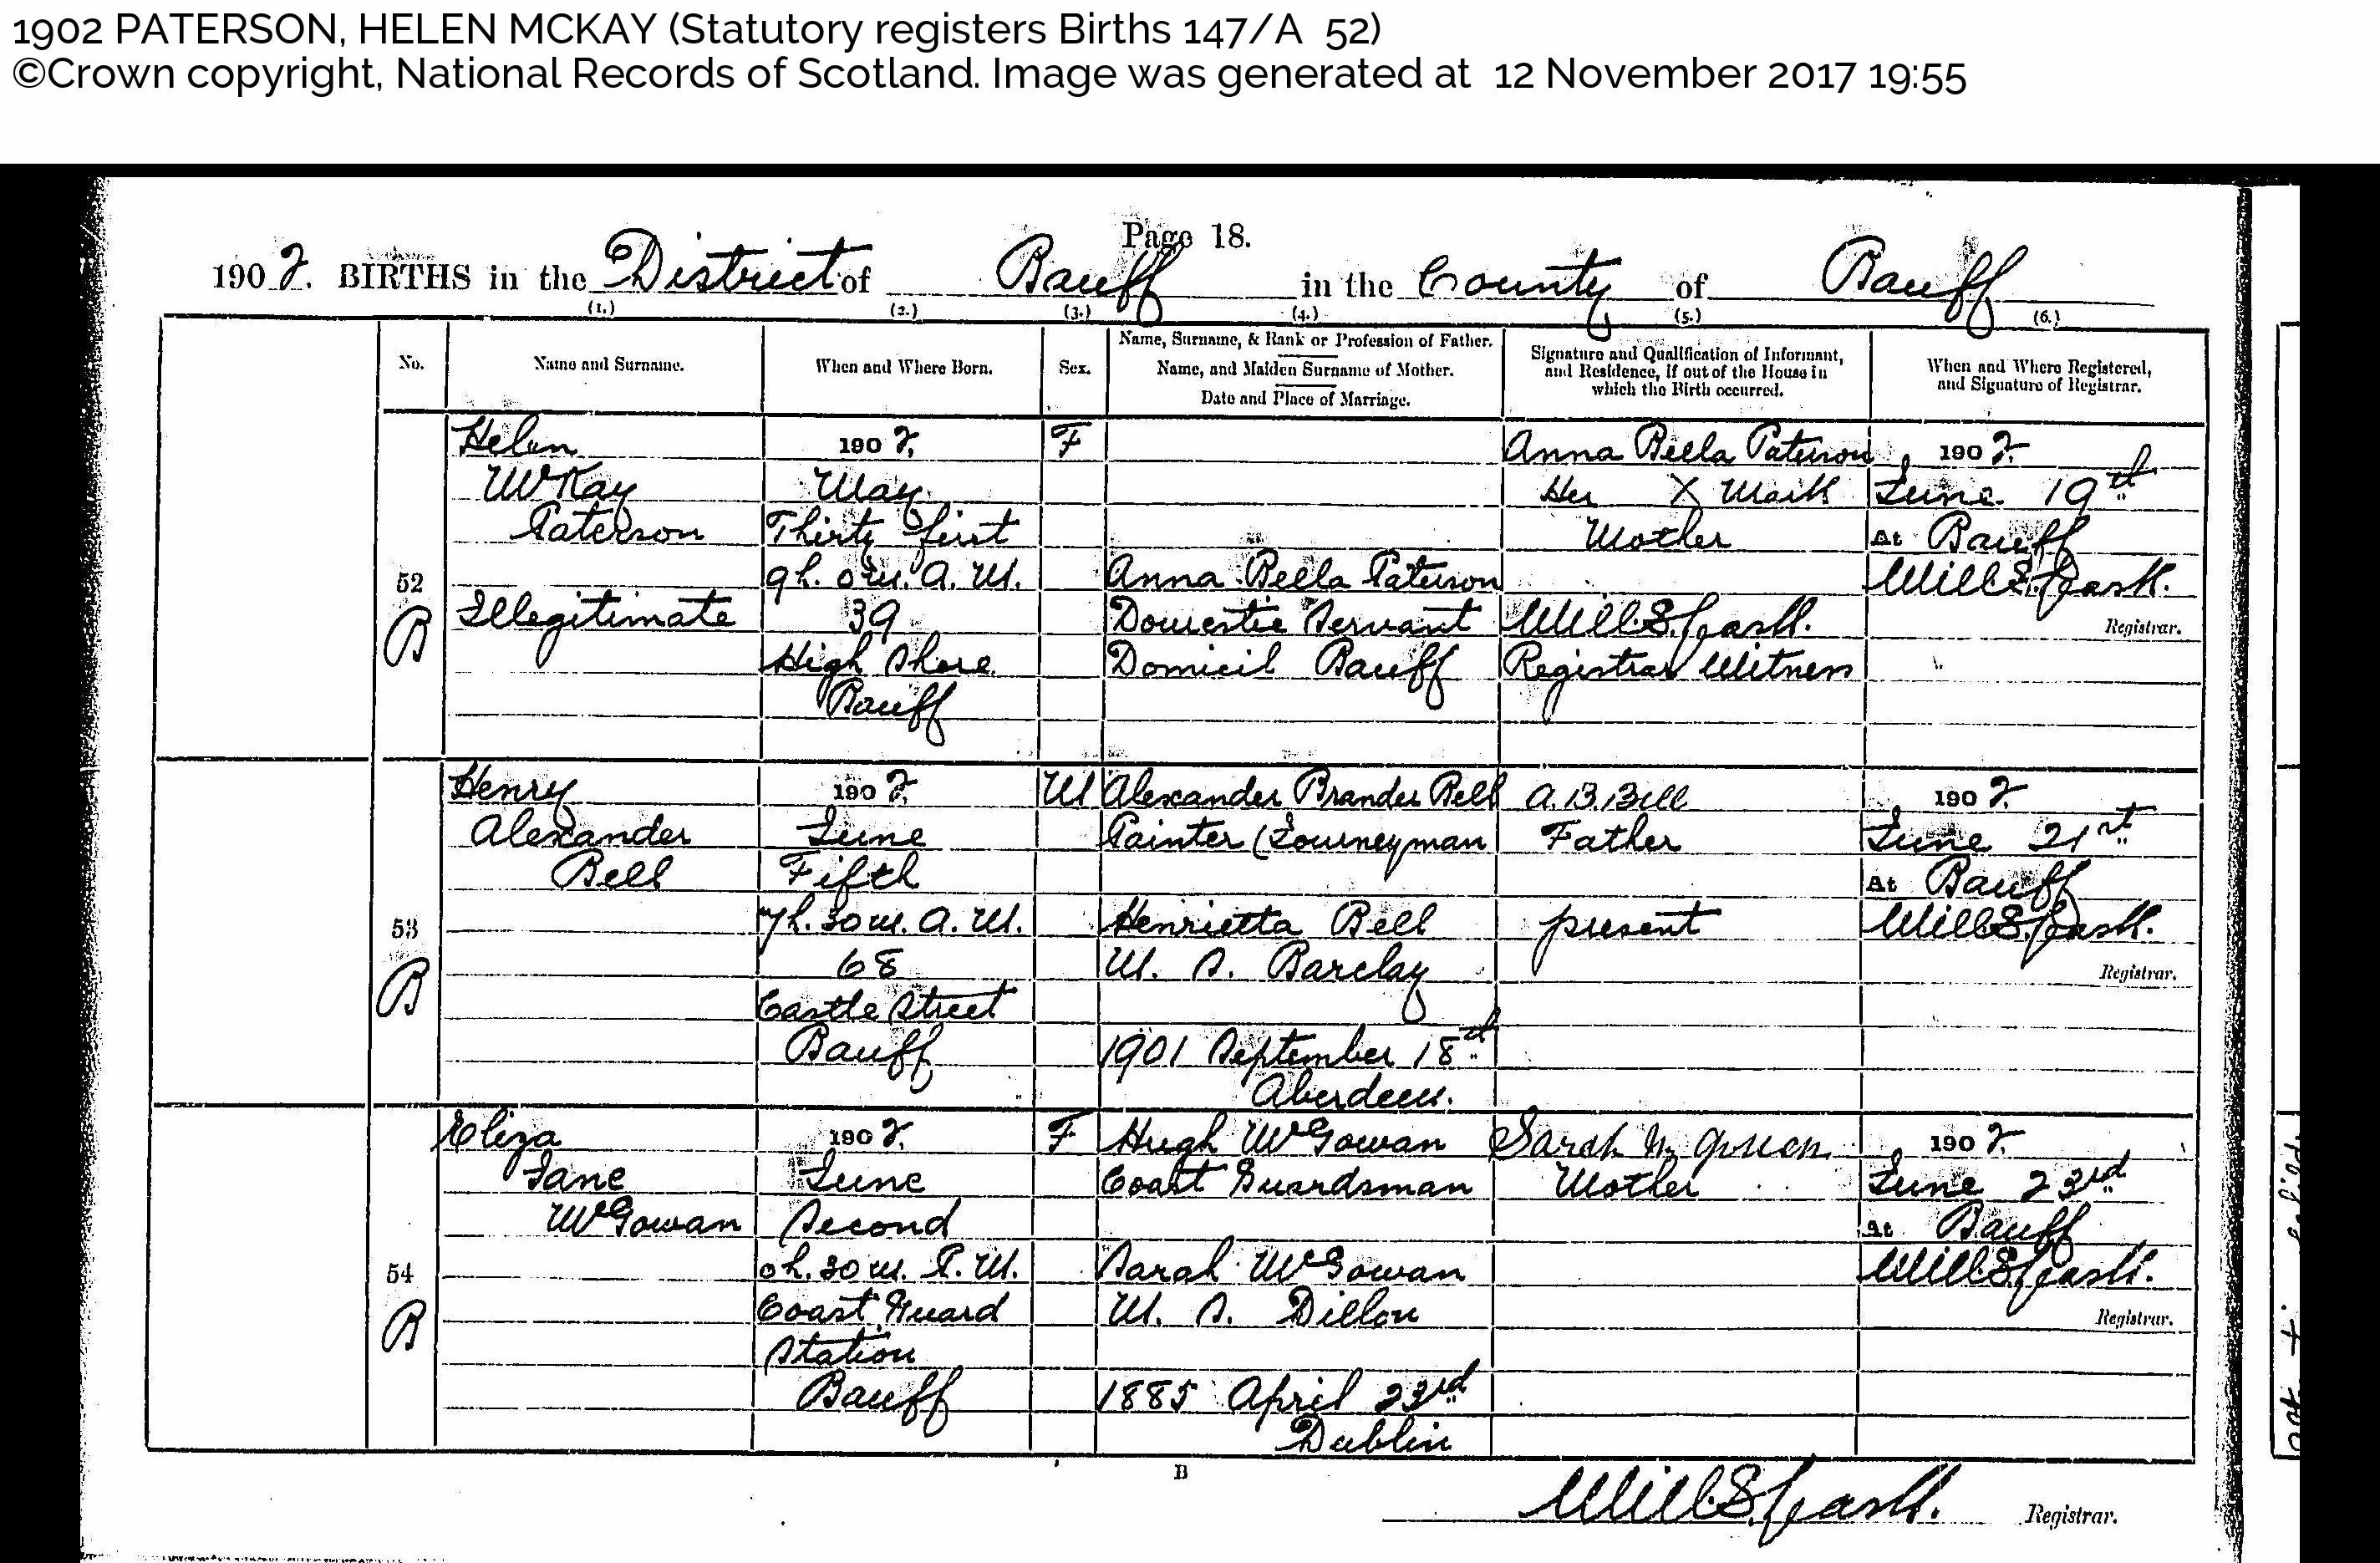 1902 PATERSON, HELEN MCKAY (Statutory registers Births 147/A 52)
©Crown copyright, National Records of Scotland. Image was generated at 12 November 2017 19:55
Page 18.
1902. BIRTHS in the District of Banff in the County of Banff
(1.) (2.) (3.) (4.) (5.) (6.)
No.
Name and Surname.
When and Where Born.
Sex.
Name, Surname, & Rank or Profession of Father.
Name, and Maiden Surname of Mother.
Date and Place of Marriage.
Signature and Qualification of Informant,
and Residence, if out of the House in
which the Birth occurred.
When and Where Registered,
and Signature of Registrar.
52
B
Helen
McKay
Paterson
Illegitimate
1902,
May
Thirty first
9h. 0m. A. M.
39
High Shore
Banff
F
Anna Bella Paterson
Domestic Servant
Domicil Banff
Anna Bella Paterson
Her X Mark
Mother
Will. S.
Registrar Witness
1902.
June 19th
At Banff
Will. S.
Registrar.
53
B
Henry
Alexander
Bell
1902,
June
Fifth
7h. 30m. A. M.
68
Castle Street
Banff
M
Alexander Brander Bell
Painter (Journeyman
Henrietta Bell
M. S. Barclay
1901 September 18th
Aberdeen.
A. B. Bell
Father
present
1902.
June 21st
At Banff
Will. S.
Registrar.
54
B
Eliza
Jane
McGowan
1902,
June
Second
0h. 30m. P. M.
Coast Guard
Station
Banff
F
Hugh McGowan
Coast Guardsman
Sarah McGowan
M. S. Dillon
1885 April 23rd
Dublin
Sarah
Mother
1902.
June 23rd
At Banff
Will. S.
Registrar.
B
Will. S.
Registrar.